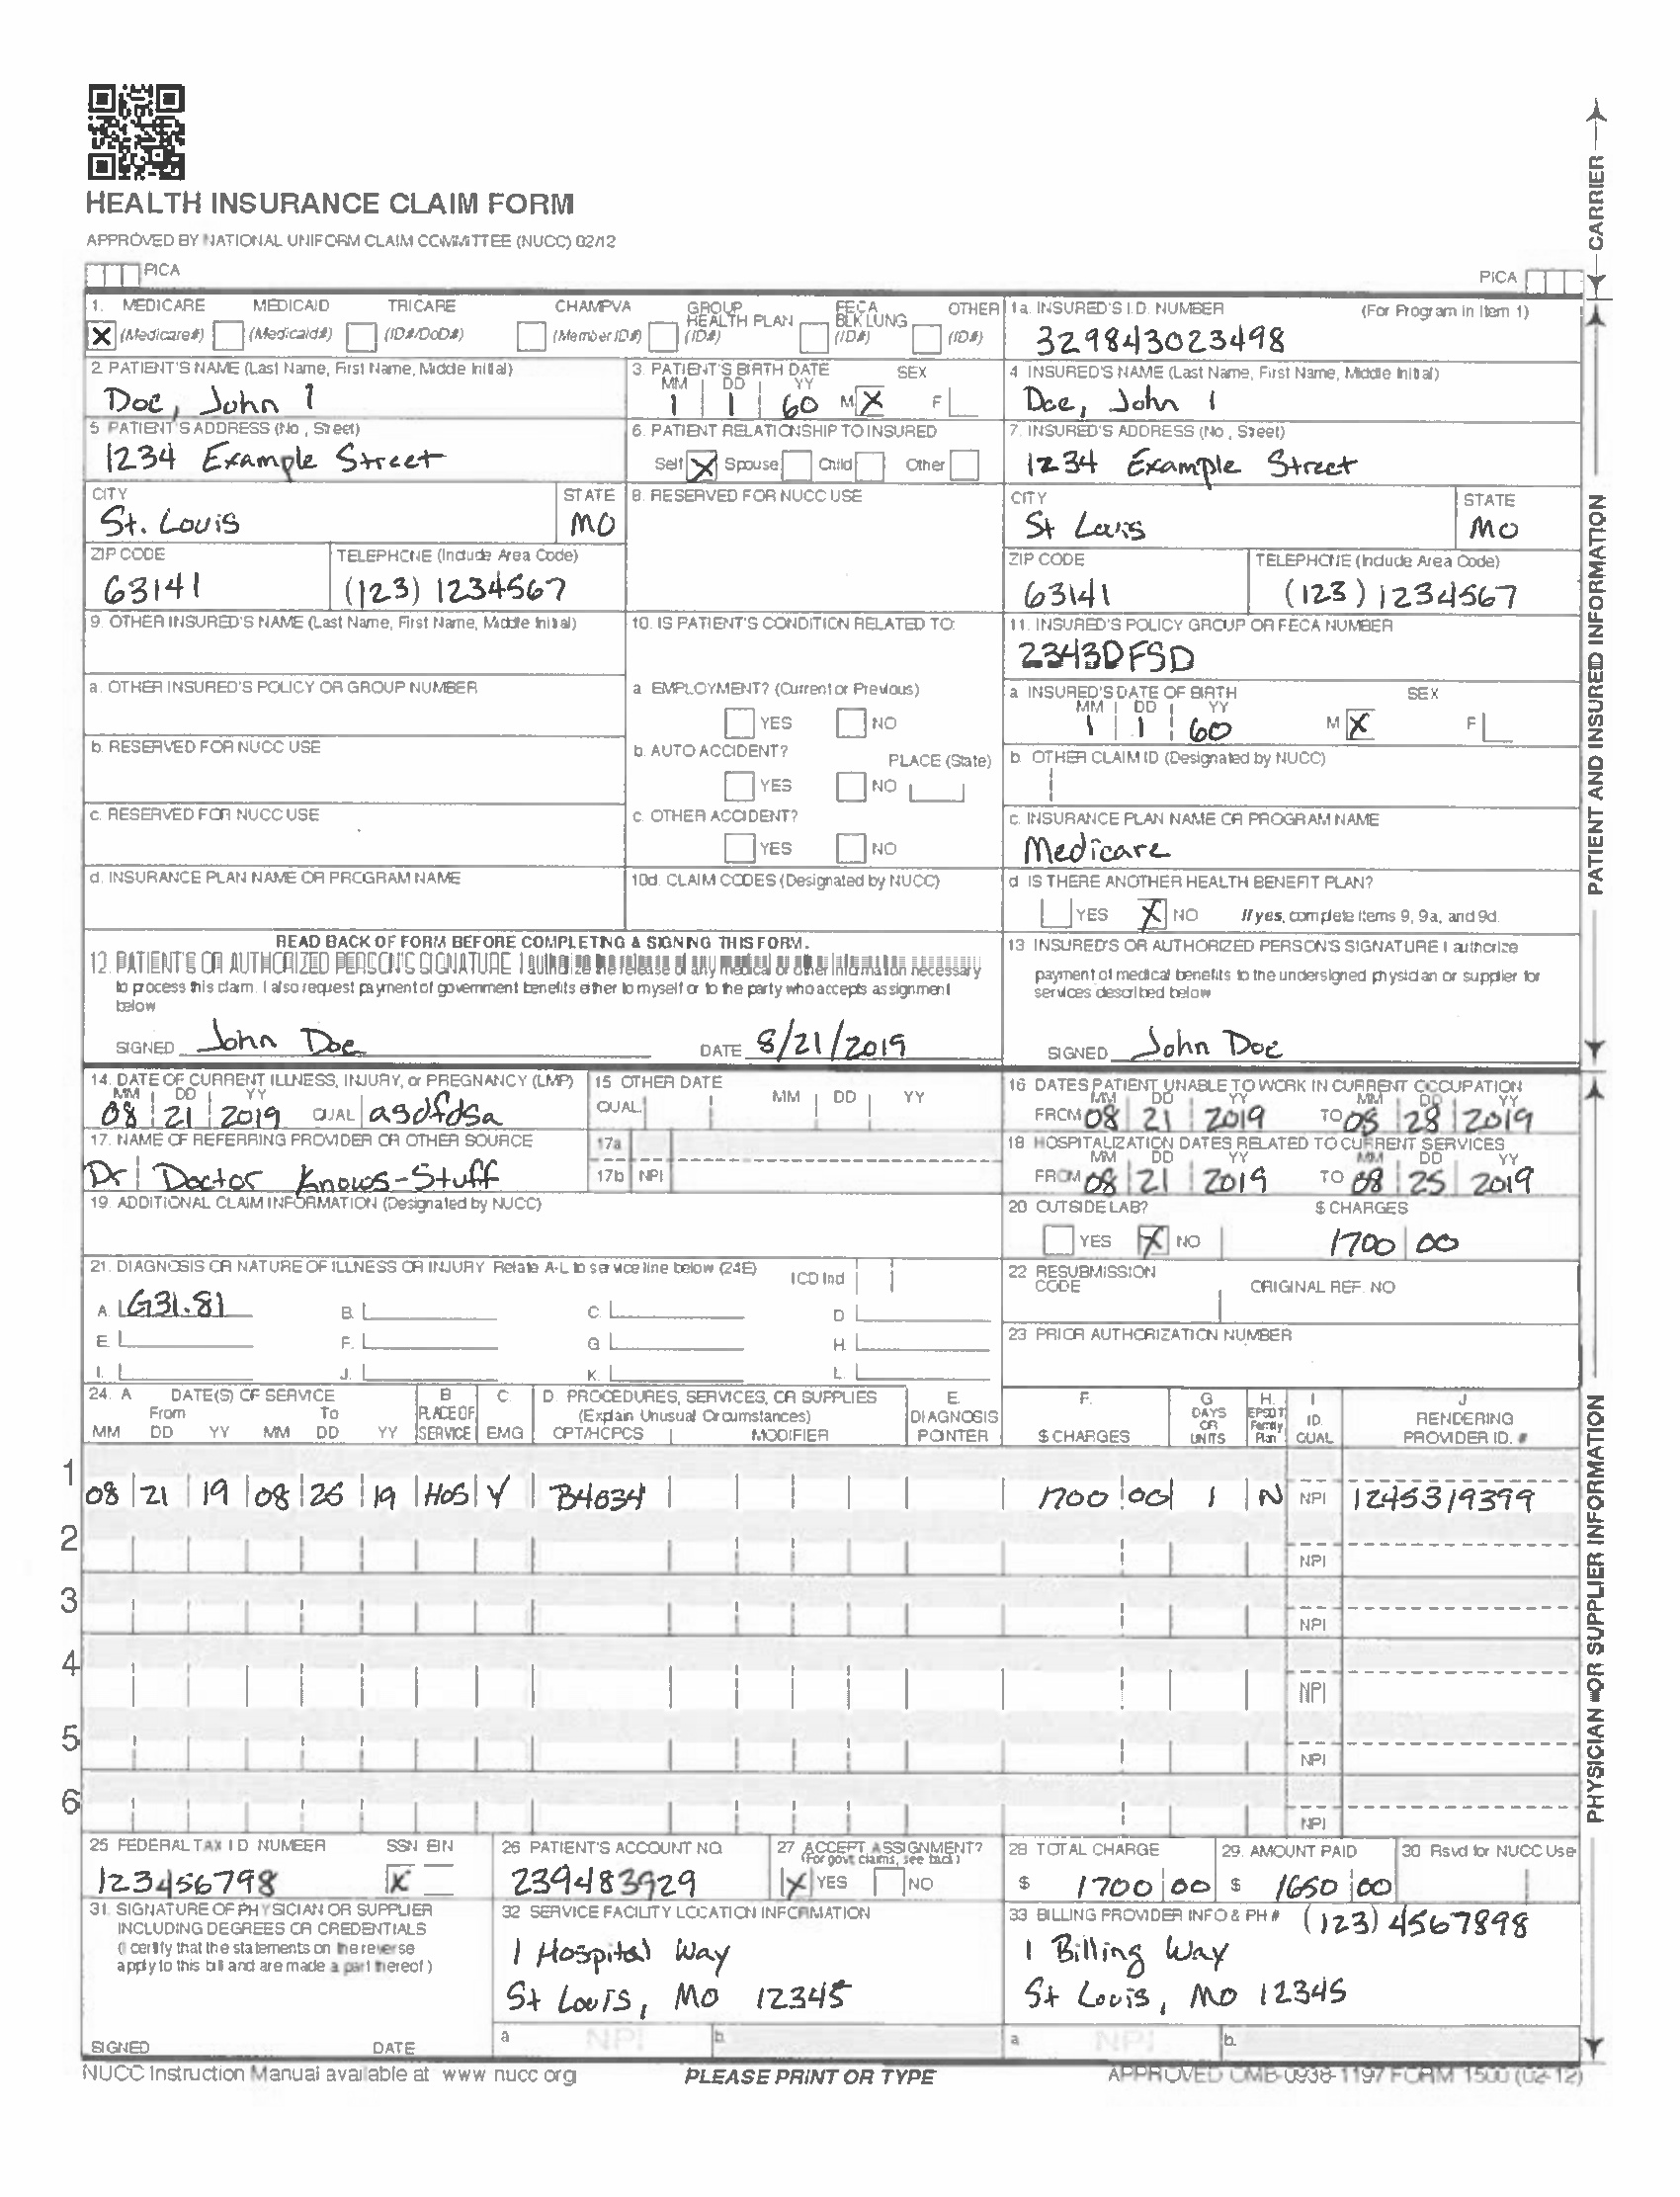 HEALTH INSURANCE CLAIM FORM
APPROVED BY NATIONAL UNIFORM CLAIM COMMITTEE (NUCC) 02/12
PICA
PICA
CARRIER
1. MEDICARE MEDICAID TRICARE CHAMPVA GROUP HEALTH PLAN FECA BLK LUNG OTHER
X (Medicare#) (Medicaid#) (ID#/DoD#) (Member ID#) (ID#) (ID#) (ID#)
1a. INSURED'S I.D. NUMBER (For Program in Item 1)
329843023498
2. PATIENT'S NAME (Last Name, First Name, Middle Initial)
Doe, John I
3. PATIENT'S BIRTH DATE SEX
MM DD YY
1 1 60 M X F
4 INSURED'S NAME (Last Name, First Name, Middle Initial)
Doe, John I
5 PATIENT'S ADDRESS (No., Street)
1234 Example Street
6. PATIENT RELATIONSHIP TO INSURED
Self X Spouse Child Other
7. INSURED'S ADDRESS (No., Street)
1234 Example Street
CITY STATE
St. Louis MO
8. RESERVED FOR NUCC USE
CITY STATE
St Louis MO
ZIP CODE TELEPHONE (Include Area Code)
63141 (123) 1234567
ZIP CODE TELEPHONE (Include Area Code)
63141 (123) 1234567
9. OTHER INSURED'S NAME (Last Name, First Name, Middle Initial)
10. IS PATIENT'S CONDITION RELATED TO:
11. INSURED'S POLICY GROUP OR FECA NUMBER
2343DFSD
a. OTHER INSURED'S POLICY OR GROUP NUMBER
a EMPLOYMENT? (Current or Previous)
YES NO
a INSURED'S DATE OF BIRTH SEX
MM DD YY
1 1 60 M X F
b. RESERVED FOR NUCC USE
b. AUTO ACCIDENT? PLACE (State)
YES NO
b. OTHER CLAIM ID (Designated by NUCC)
c. RESERVED FOR NUCC USE
c. OTHER ACCIDENT?
YES NO
c. INSURANCE PLAN NAME OR PROGRAM NAME
Medicare
d. INSURANCE PLAN NAME OR PROGRAM NAME
10d. CLAIM CODES (Designated by NUCC)
d IS THERE ANOTHER HEALTH BENEFIT PLAN?
YES X NO If yes, complete items 9, 9a, and 9d.
READ BACK OF FORM BEFORE COMPLETING & SIGNING THIS FORM.
12. PATIENT'S OR AUTHORIZED PERSON'S SIGNATURE I authorize the release of any medical or other information necessary
to process this claim. I also request payment of government benefits either to myself or to the party who accepts assignment
below
SIGNED John Doe DATE 8/21/2019
13 INSURED'S OR AUTHORIZED PERSON'S SIGNATURE I authorize
payment of medical benefits to the undersigned physician or supplier for
services described below
SIGNED John Doe
PATIENT AND INSURED INFORMATION
14. DATE OF CURRENT ILLNESS, INJURY, or PREGNANCY (LMP)
MM DD YY
08 21 2019 QUAL asdfdsa
15 OTHER DATE
QUAL. MM DD YY
16 DATES PATIENT UNABLE TO WORK IN CURRENT OCCUPATION
MM DD YY MM DD YY
FROM 08 21 2019 TO 08 28 2019
17. NAME OF REFERRING PROVIDER OR OTHER SOURCE
Dr Doctor Knows-Stuff
17a
17b NPI
18 HOSPITALIZATION DATES RELATED TO CURRENT SERVICES
MM DD YY MM DD YY
FROM 08 21 2019 TO 08 25 2019
19. ADDITIONAL CLAIM INFORMATION (Designated by NUCC)
20 OUTSIDE LAB? $ CHARGES
YES X NO 1700 00
21. DIAGNOSIS OR NATURE OF ILLNESS OR INJURY Relate A-L to service line below (24E) ICD Ind
A. G31.81 B. C. D.
E. F. G. H.
I. J. K. L.
22 RESUBMISSION CODE ORIGINAL REF. NO
23 PRIOR AUTHORIZATION NUMBER
24. A DATE(S) OF SERVICE B C. D. PROCEDURES, SERVICES, OR SUPPLIES E. F. G H. I J
From To PLACE OF (Explain Unusual Circumstances) DIAGNOSIS DAYS OR EPSDT Family ID. RENDERING
MM DD YY MM DD YY SERVICE EMG CPT/HCPCS MODIFIER POINTER $ CHARGES UNITS Plan QUAL PROVIDER ID. #
1
08 21 19 08 25 19 HOS Y B4034 1700 00 1 N NPI 1245319399
2
NPI
3
NPI
4
NPI
5
NPI
6
NPI
25 FEDERAL TAX I D NUMBER SSN EIN
123456798 X
26 PATIENT'S ACCOUNT NO.
239483929
27 ACCEPT ASSIGNMENT?
(For govt claims, see back)
X YES NO
28 TOTAL CHARGE
$ 1700 00
29. AMOUNT PAID
$ 1650 00
30 Rsvd for NUCC Use
31. SIGNATURE OF PHYSICIAN OR SUPPLIER
INCLUDING DEGREES OR CREDENTIALS
(I certify that the statements on the reverse
apply to this bill and are made a part thereof)
SIGNED DATE
32 SERVICE FACILITY LOCATION INFORMATION
1 Hospital Way
St Louis, MO 12345
a NPI b.
33 BILLING PROVIDER INFO & PH # (123) 4567898
1 Billing Way
St Louis, MO 12345
a. NPI b.
PHYSICIAN OR SUPPLIER INFORMATION
NUCC Instruction Manual available at www nucc org
PLEASE PRINT OR TYPE
APPROVED OMB-0938-1197 FORM 1500 (02-12)